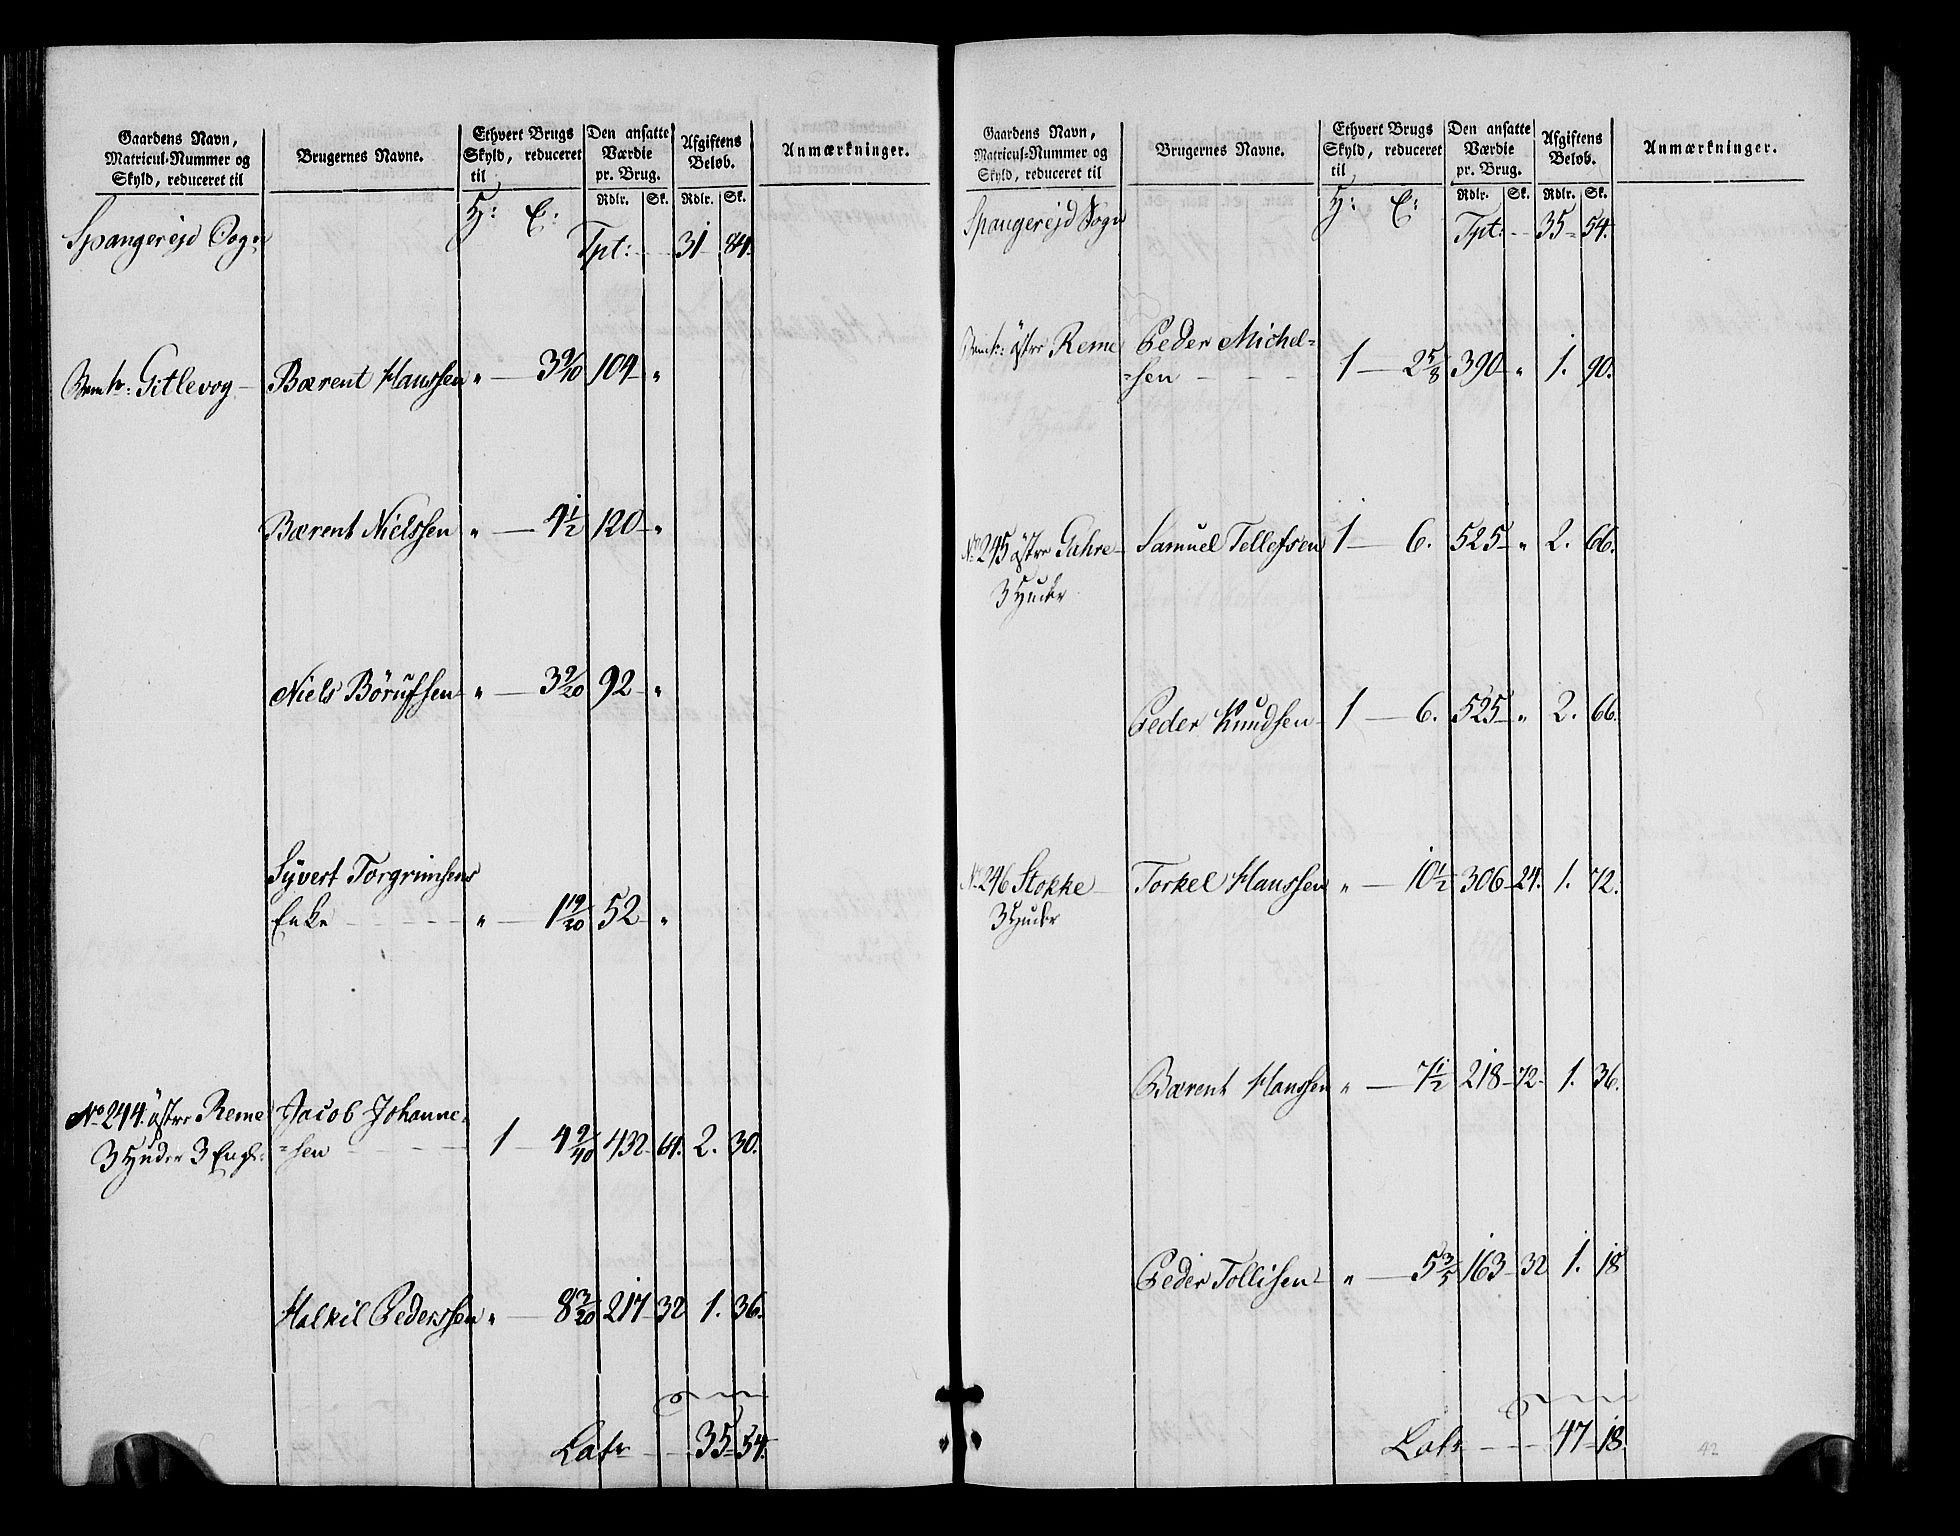 Gaardens Navn, Matricul-Nummer og Skyld, reduceret til | Brugernes Navne. | Ethvert Brugs Skyld, reduceret til | Den ansatte Værdie pr. Brug. | Afgiftens Beløb. | Anmærkninger.
H: E: Rdlr. Sk. Rdlr. Sk.
Spangereid Sogn Tpt: 31 84.
Gitlevog Bærent Hanssen " 3 9/10 104 "
Bærent Nielssen " 4 1/2 120 "
Niels Börufsen " 3 9/20 92 "
Syvert Torgrimsens
Enke " 1 19/20 52 "
No 244. östre Reme Jacob Johanne=
3 Huder 3 Engl: =sen 1 4 9/40 432 64. 2. 30.
Halkil Pederssen " 8 3/20 217 32 1. 36.
Lats 35 54.
Gaardens Navn, Matricul-Nummer og Skyld, reduceret til | Brugernes Navne. | Ethvert Brugs Skyld, reduceret til | Den ansatte Værdie pr. Brug. | Afgiftens Beløb. | Anmærkninger.
H: E: Rdlr. Sk. Rdlr. Sk.
Spangereid Sogn Tpt: 35 54.
östre Reme Peder Michel=
=sen 1 2 5/8 390 " 1. 90.
No 245 östre Gahre Samuel Tellefsen 1 6. 525 " 2. 66.
3 Huder
Peder Knudsen 1 6. 525 " 2. 66.
No 246 Stokke Torkel Hanssen " 10 1/2 306 24. 1. 72.
3 Huder
Bærent Hanssen " 7 1/2 218 72 1. 36.
Peder Tollisen " 5 3/5 163 32 1. 18
Lats 47 18.
42